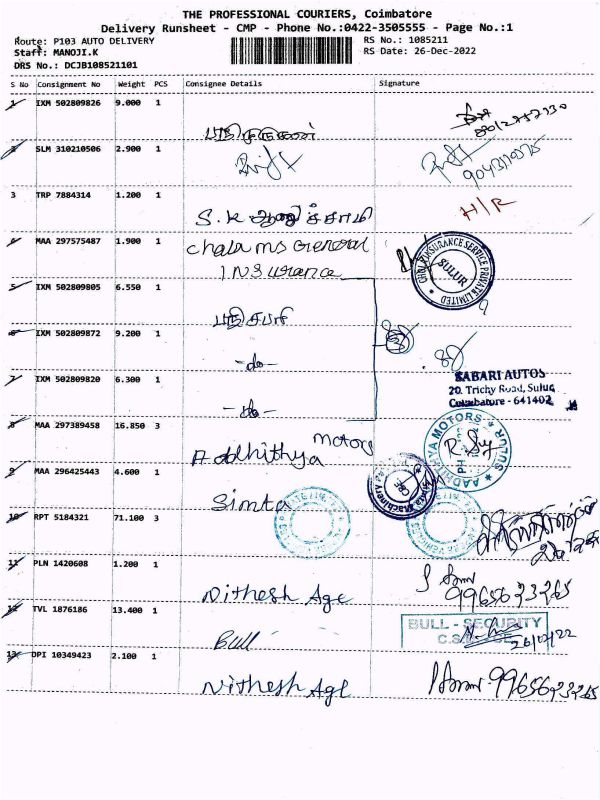 THE PROFESSIONAL COURIERS, Coimbatore
Delivery Runsheet - CMP - Phone No.:0422-3505555 - Page No.:1
Route: P103 AUTO DELIVERY
RS No.: 1085211
Staff: MANOJI.K
RS Date: 26-Dec-2022
DRS No.: DCJB108521101
S No Consignment No Weight PCS Consignee Details Signature
1 IXM 502809826 9.000 1
SLM 310210506 2.900 1
9043110375
3 TRP 7884314 1.200 1
H/R
S.K
4 MAA 297575487 1.900 1
Chola ms General
Insurance
CHOLA INSURANCE SERVICE PRIVATE LIMITED
SULUR
5 IXM 502809805 6.550 1
6 IXM 502809872 9.200 1
-do-
SABARI AUTOS
20. Trichy Road, Sulur
Coimbatore - 641402
7 IXM 502809820 6.300 1
-do-
8 MAA 297389458 16.850 3
Addhithya motors
AADHITHYA MOTORS
SULUR
9 MAA 296425443 4.600 1
Simta
Simta Machinery
10 RPT 5184321 71.100 3
11 PLN 1420608 1.200 1
Nithesh Age
9965623265
12 TVL 1876186 13.400 1
Bull
BULL - SECURITY
13 DPI 10349423 2.100 1
Nithesh Age
9965623265